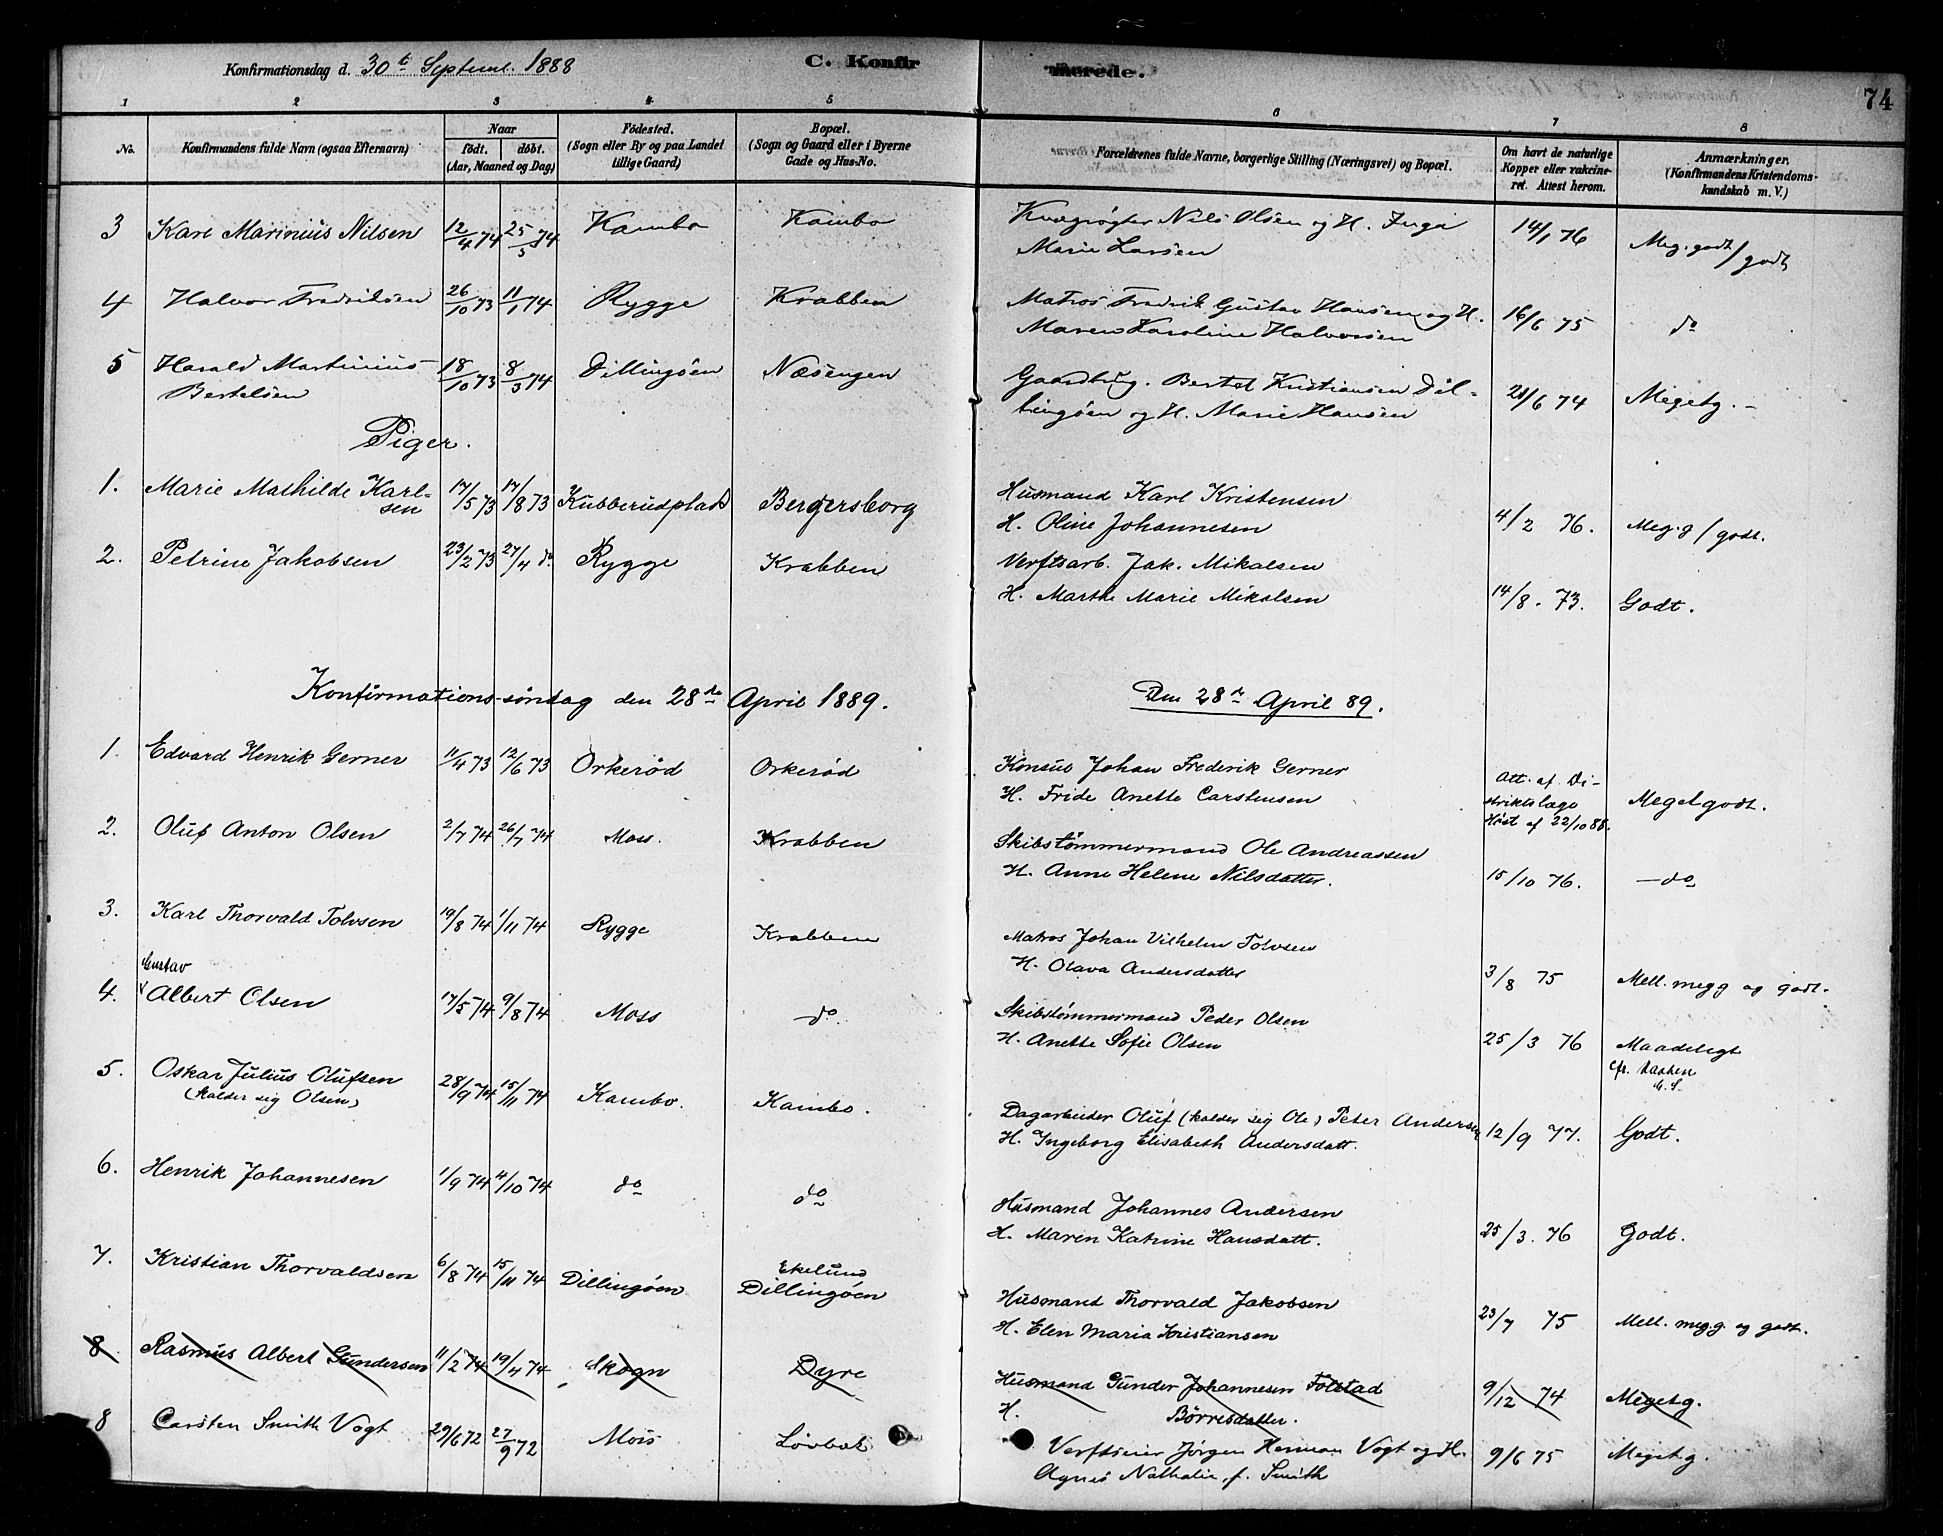 Konfirmationsdag d. 30te Septembr. 1888 C. Konfirmerede. 74
1 2 3 4 5 6 7 8
No. Konfirmandens fulde Navn (ogsaa Efternavn) Naar født. døbt. (Aar, Maaned og Dag) Fødested. (Sogn eller By og paa Landet tillige Gaard) Bopæl. (Sogn og Gaard eller i Byerne Gade og Hus-No.) Forældrenes fulde Navne, borgerlige Stilling (Næringsvei) og Bopæl. Om havt de naturlige Kopper eller vakcineret. Attest herom. Anmærkninger. (Konfirmandens Kristendomskundskab m. V.)
3 Karl Marinius Nilsen 12/4 74 25/5 74 Kambo Kambo Kvægrøgter Nils Olsen og H. Inga
Marie Larsen 14/1 76 Meg. godt/godt
4 Halvor Fredriksen 26/10 73 11/1 74 Rygge Krabben Matros Fredrik Gustav Hansen og H.
Maren Karoline Halvorsen 16/6 75 do
5 Harald Martinius 18/10 73 8/3 74 Dillingøen Næsengen Gaardbrug. Bertel Kristiansen Dil-
Bertelsen lingøen og H. Marie Hansen 21/6 74 Megetg. -
Piger.
1. Marie Mathilde Karl- 17/5 73 17/8 73 Kubberudplads Bergersborg Husmand Karl Kristensen
sen H. Oline Johannesen 4/2 76. Meg. g/godt.
2. Petrine Jakobsen 23/2 73 27/4 do Rygge Krabben Verftsarb. Jak. Mikalsen
H. Marthe Marie Mikalsen 14/8. 73. Godt.
Konfirmations-søndag den 28de April 1889. Den 28de April 89.
1. Edvard Henrik Gerner 11/4 73 12/6 73 Orkerød Orkerød Konsul Johan Frederik Gerner
H. Fride Anette Carstensen Att. af Di-
striktslæge
Høst af 22/10 88. Megetgodt.
2. Oluf Anton Olsen 2/7 74 26/7 74 Moss. Krabben Skibstømmermand Ole Andreassen
H. Anne Helene Nilsdatter. 15/10 76. - do
3. Karl Thorvald Tolvsen 19/8 74 1/11 74 Rygge Krabben Matros Johan Vilhelm Tolvsen
H. Olava Andersdatter 3/8 75 Mell. meg g og godt.
Gustav
4. Albert Olsen 17/5 74 9/8 74 Moss - do. Skibstømmermand Peder Olsen
H. Anette Sofie Olsen 25/3 76 Maadeligt
5. Oskar Julius Olufsen 28/9 74 15/11 74 Kambo. Kambo.
(kalder sig Olsen)
Dagarbeider Oluf (kalder sig Ole) Peter Andersen
H. Ingeborg Elisabeth Andersdatt. 12/9 77. Godt.
6. Henrik Johannesen 1/9 74 4/10 74 do do
Husmand Johannes Andersen
H. Maren Katrine Hansdatt. 25/3. 76 Godt.
7. Kristian Thorvaldsen 6/8 74 15/11 74 Dillingøen Ekelund
Dillingøen
Husmand Thorvald Jakobsen
H. Elen Maria Kristiansen 23/7 75 Mell. meg.g. og godt.
8. Rasmus Albert Gundersen 11/2 74 19/4 74 Skogn Dyre Husmand Gunder Johannesen Folstad
H. Børresdatter. 9/12 74 Megetg.
8 Carsten Smith Vogt 29/6 72 27/9 72 Moss Løvbak Verftseier Jørgen Herman Vogt og H.
Agnes Nathalie f. Smith 9/6 75 Megetg.